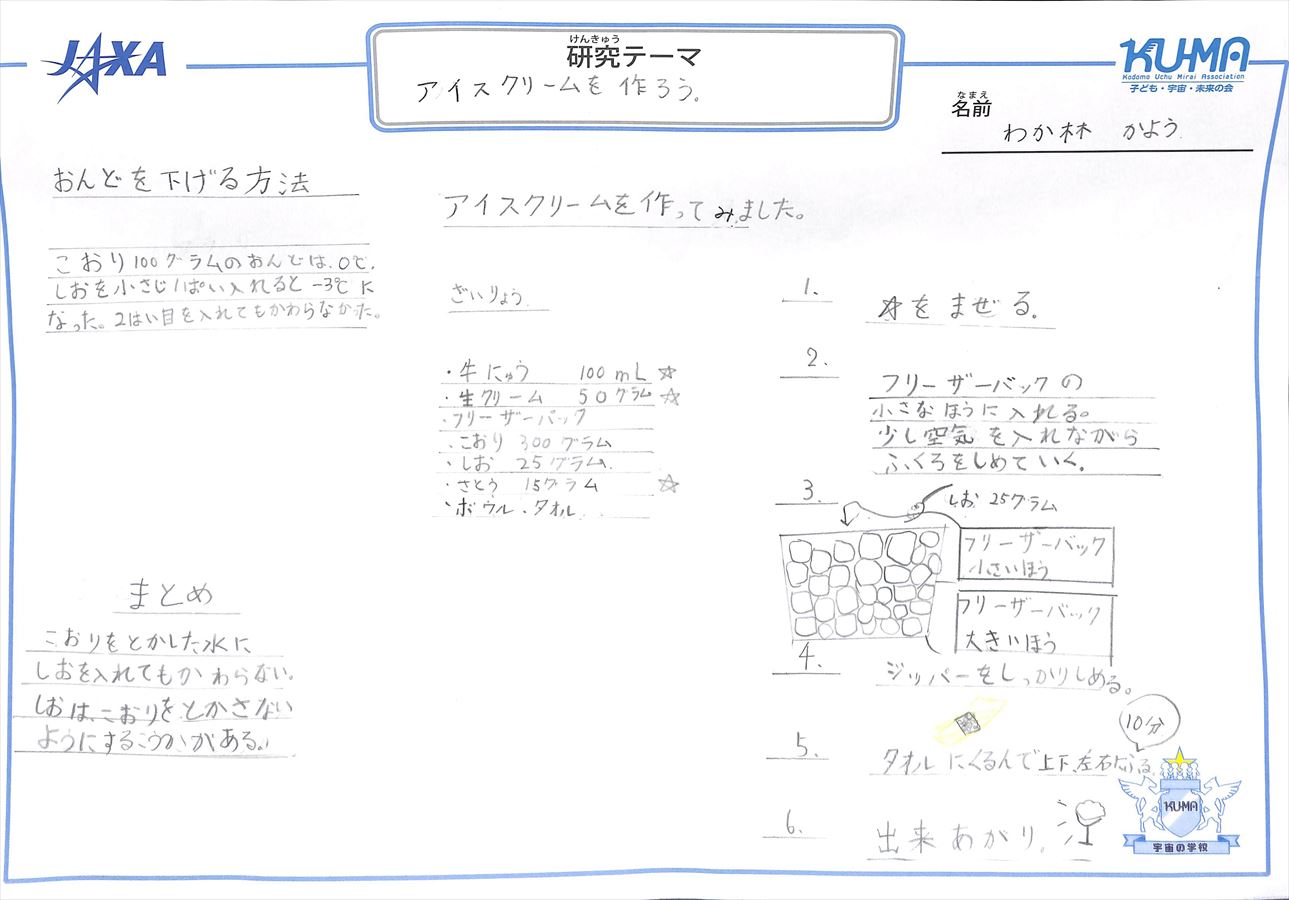 JAXA
けんきゅう
研究テーマ
アイスクリームを作ろう。
KU-MA
Kodomo Uchu Mirai Association
子ども・宇宙・未来の会
なまえ
名前
わか林 かよう
おんどを下げる方法
こおり100グラムのおんどは、0℃。
しおを小さじ1ぱい入れると-3℃に
なった。2はい目を入れてもかわらなかった。
まとめ
こおりをとかした水に
しおを入れてもかわらない。
しおは、こおりをとかさない
ようにするこうかがある。
アイスクリームを作ってみました。
ざいりょう
・牛にゅう 100mL ☆
・生クリーム 50グラム ☆
・フリーザーバック
・こおり 300グラム
・しお 25グラム
・さとう 15グラム ☆
・ボウル・タオル
1.
☆をまぜる。
2.
フリーザーバックの
小さなほうに入れる。
少し空気を入れながら
ふくろをしめていく。
3.
しお 25グラム
フリーザーバック
小さいほう
フリーザーバック
大きいほう
4.
ジッパーをしっかりしめる。
10分
5.
タオルにくるんで上下、左右にふる。
6.
出来あがり。
KUMA
宇宙の学校